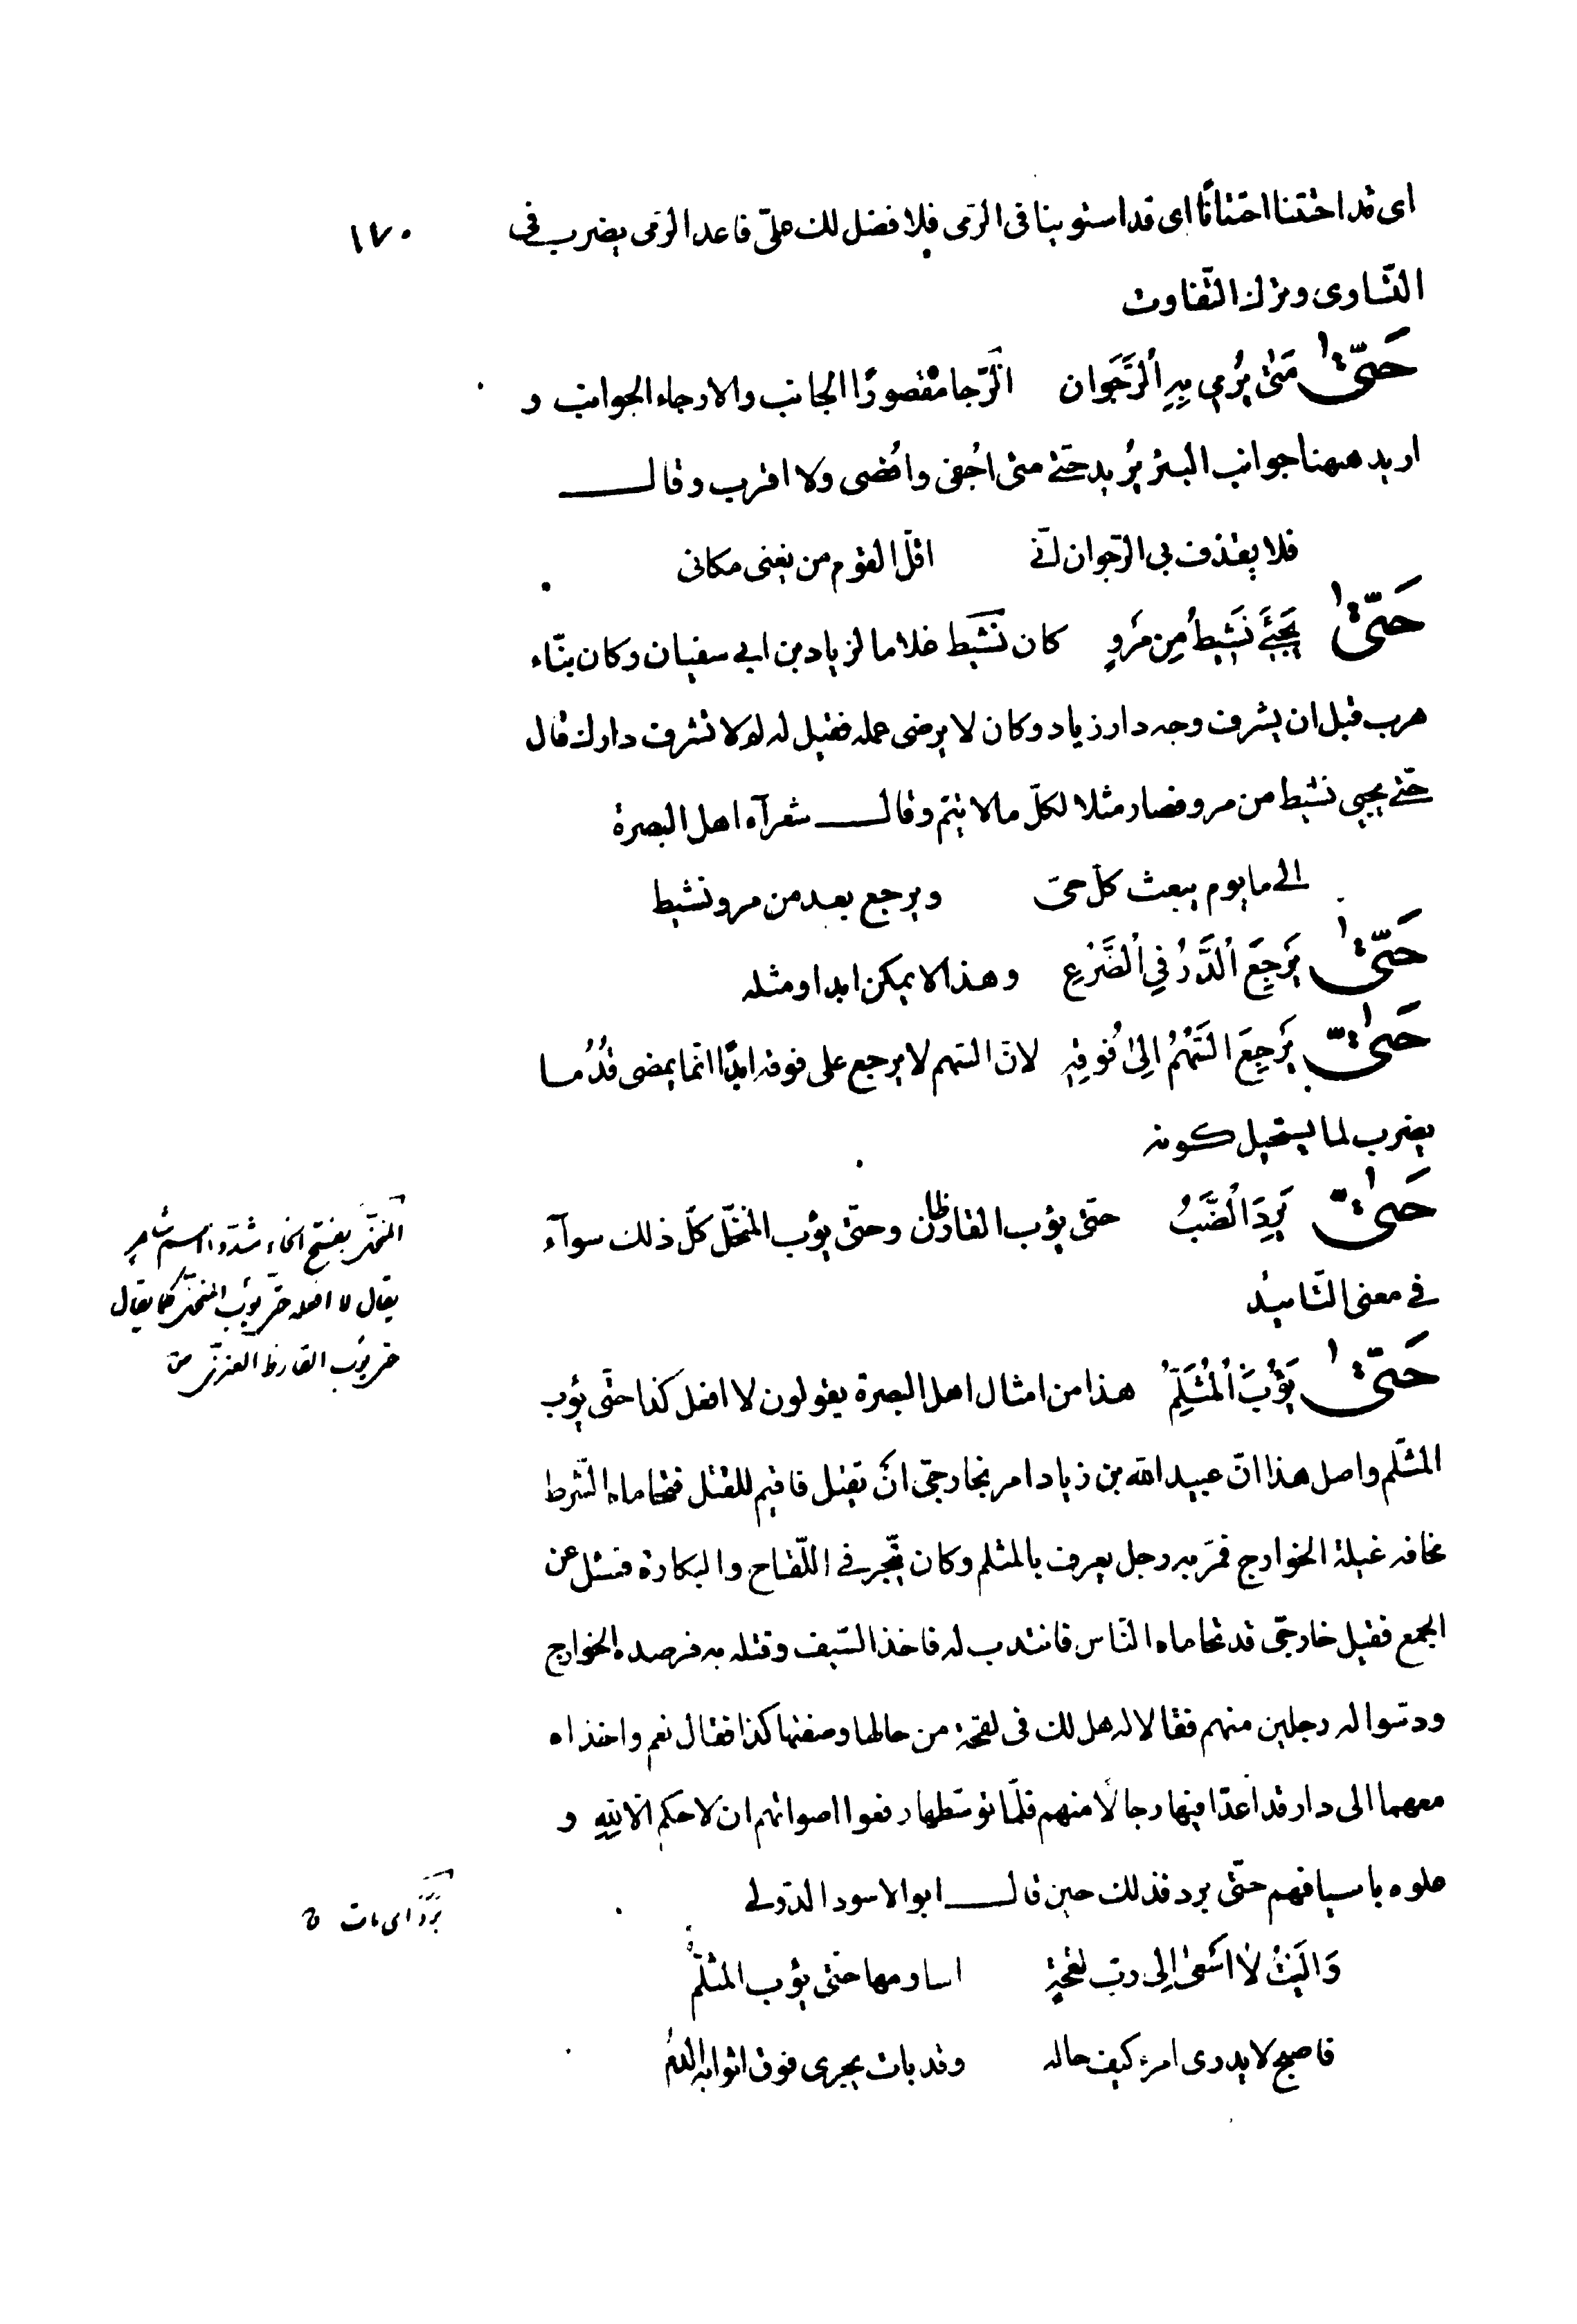 ١٧٠
اى قد اختتنا اختتانًا اى قد استوينا فى الرّمى فلا فضل لك علىّ فاعد الرمى يضرب فى
التّساوى وترك التّفاوت
حَتّىٰ مَتىٰ يُرمى بِهِ اْلرَّجَوان الرّجا مقصورًا الجانب والارجاء الجوانب و
اريد ههنا جوانب البئر يُريد حتى متى اُجفى واُقصى ولا اقرب وقال
فلا يقذف بى الرّجوان انّى اقلّ القوم من يغنى مكانى
حَتّىٰ يَجئَ نَشيطُ مِن مَروٍ كان نَشيط غلاما لزياد بن ابى سفيان وكان بنّاء
هرب قبل ان يشرف وجه دار زياد وكان لا يرضى عمله فقيل له لم لا تشرف دارك قال
حتى يجيى نشيط من مرو فصار مثلا لكلّ ما لا يتم وقال شعرآء اهل البصرة
الى ما يوم يبعث كلّ حىّ ويرجع بعد من مرو نشيط
حَتّىٰ يَرجِعَ اْلدَّرُّ فِي اْلضَّرْعِ وهذا لا يمكن ابدا ومثله
حَتّىٰ يَرجِعَ السَّهْمُ اِلىٰ فُوقِهِ لانّ السّهم لا يرجع على فوقه ابدًا انّما يمضى قُدُما
يضرب لما يستحيل كونه
حَتّىٰ يَرِدَ اْلضَّبُّ حتى يؤب القارظان وحتّى يؤب المنخّل كلّ ذلك سوآء
فى معنى التّابيد
المنخّل بفتح الخاء مشدّدا اسم شاعر
يقال لا افعله حتّى يؤب المنخّل كما يقال
حتى يؤب القارظ العنزىّ
حَتّىٰ يَؤُبَ اْلمُثَلَّمُ هذا من امثال اهل البصرة يقولون لا افعل كذا حتّى يؤب
المثلّم واصل هذا انّ عبيد الله بن زياد امر بخارجىّ انْ يقتل فاقيم للقتل فتحاماه الشّرط
مخافة غيلة الخوارج فمرّ به رجل يعرف بالمثلم وكان يتّجر فى اللّقاح والبكارة فسئل عن
الجمع فقيل خارجىّ قد تحاماه النّاس فانتدب له فاخذ السّيف وقتله به فرصده الخوارج
ودسّوا له رجلين منهم فقالا له هل لك فى لقحة من حالها وصفتها كذا فقال نعم واخذاه
معهما الى دار قد اعدّا فيها رجالًا منهم فلمّا توسّطها رفعوا اصواتهم ان لا حكم الّا لِلّهِ و
علوه باسيافهم حتّى برد فذلك حين قال ابو الاسود الدّولى
بَرَدَ اى مات
وَاٰلَيْتُ لاٰ اَسْعىٰ اِلى ربّ لقحةٍ اساومها حتّى يؤب المثلّمُ
فاصبح لا يدرى امرء كيف حاله وقد بات يجرى فوق اثوابه الدّمُ